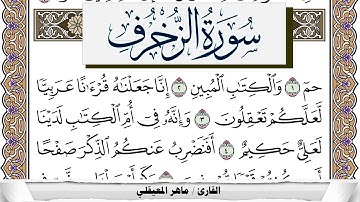 سُورَةُ الزُّخْرُفِ
حمٓ ۝١ وَٱلْكِتَٰبِ ٱلْمُبِينِ ۝٢ إِنَّا جَعَلْنَٰهُ قُرْءَٰنًا عَرَبِيًّا
لَّعَلَّكُمْ تَعْقِلُونَ ۝٣ وَإِنَّهُۥ فِىٓ أُمِّ ٱلْكِتَٰبِ لَدَيْنَا
لَعَلِىٌّ حَكِيمٌ ۝٤ أَفَنَضْرِبُ عَنكُمُ ٱلذِّكْرَ صَفْحًا
القارئ / ماهر المعيقلي